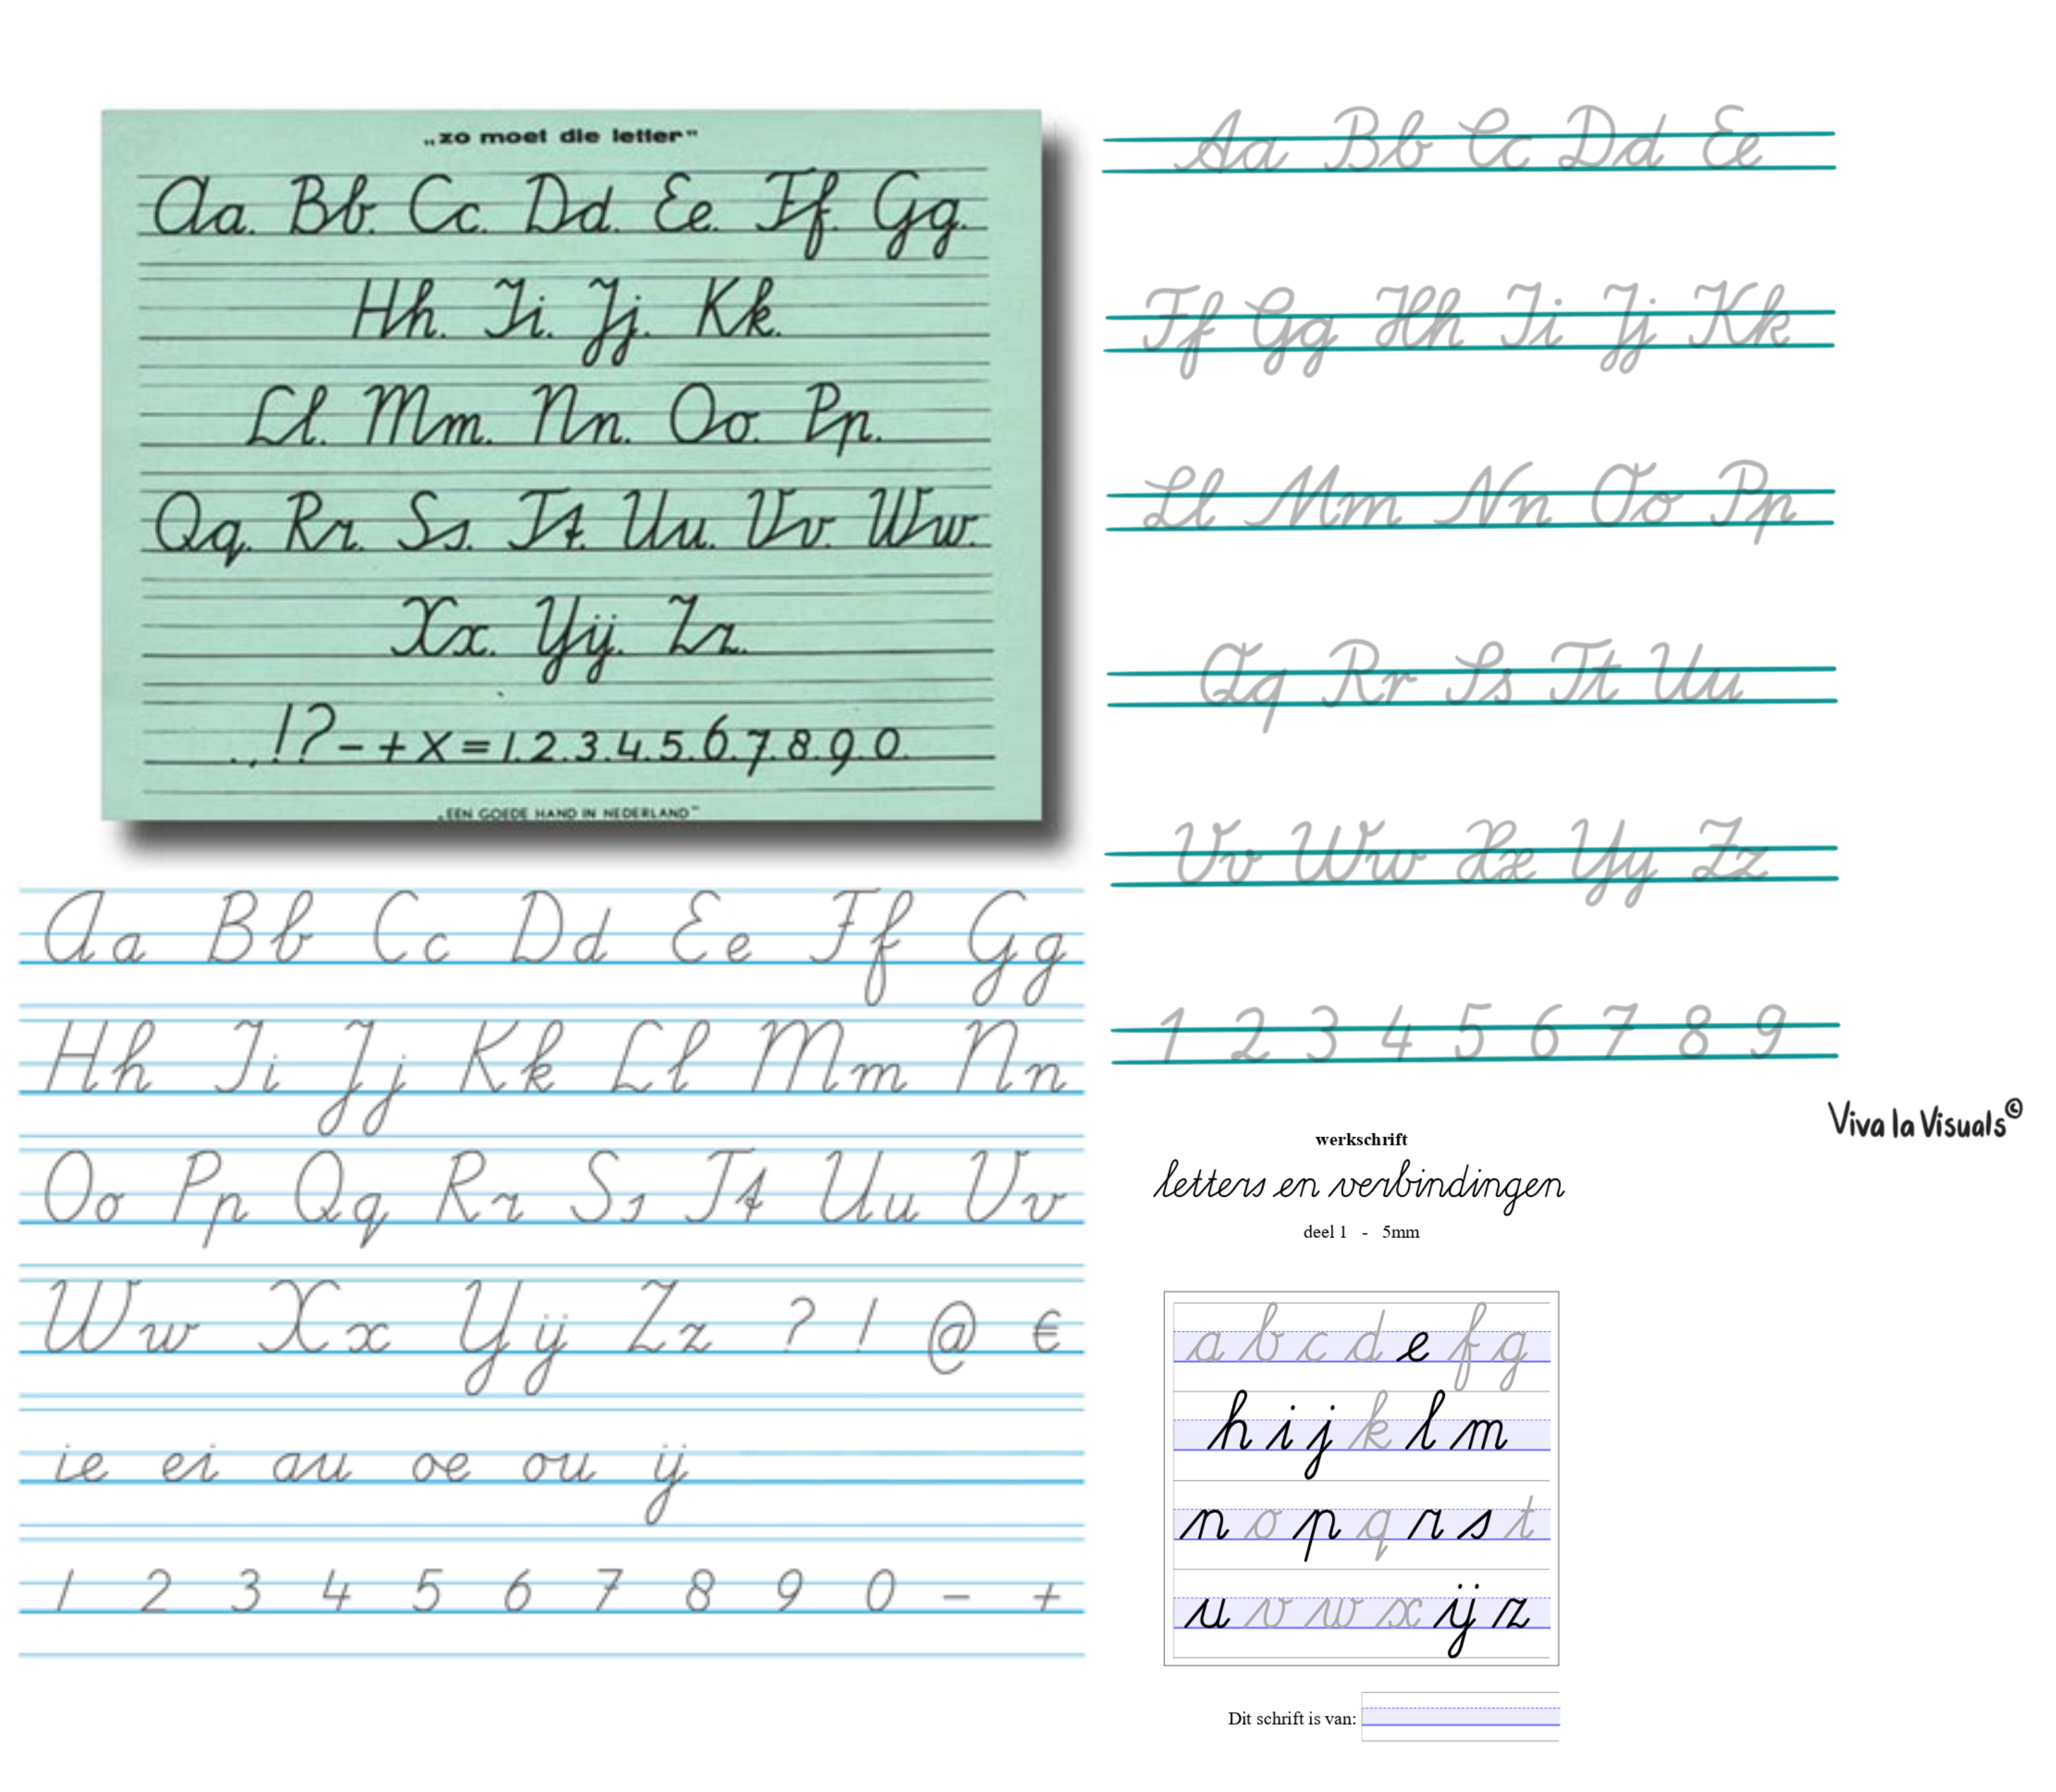 „zo moet die letter"
Aa. Bb. Cc. Dd. Ee. Ff. Gg.
Hh. Ii. Jj. Kk.
Ll. Mm. Nn. Oo. Pp.
Qq. Rr. Ss. Tt. Uu. Vv. Ww.
Xx. Yij. Zz.
.,!?-+x=1.2.3.4.5.6.7.8.9.0.
„EEN GOEDE HAND IN NEDERLAND"
Aa Bb Cc Dd Ee Ff Gg
Hh Ii Jj Kk Ll Mm Nn
Oo Pp Qq Rr Ss Tt Uu Vv
Ww Xx Yij Zz ? ! @ €
ie ei au oe ou ij
1 2 3 4 5 6 7 8 9 0 - +
Aa Bb Cc Dd Ee
Ff Gg Hh Ii Jj Kk
Ll Mm Nn Oo Pp
Qq Rr Ss Tt Uu
Vv Ww Xx Yy Zz
1 2 3 4 5 6 7 8 9
Viva la Visuals©
werkschrift
letters en verbindingen
deel 1 - 5mm
a b c d e f g
h i j k l m
n o p q r s t
u v w x ij z
Dit schrift is van: